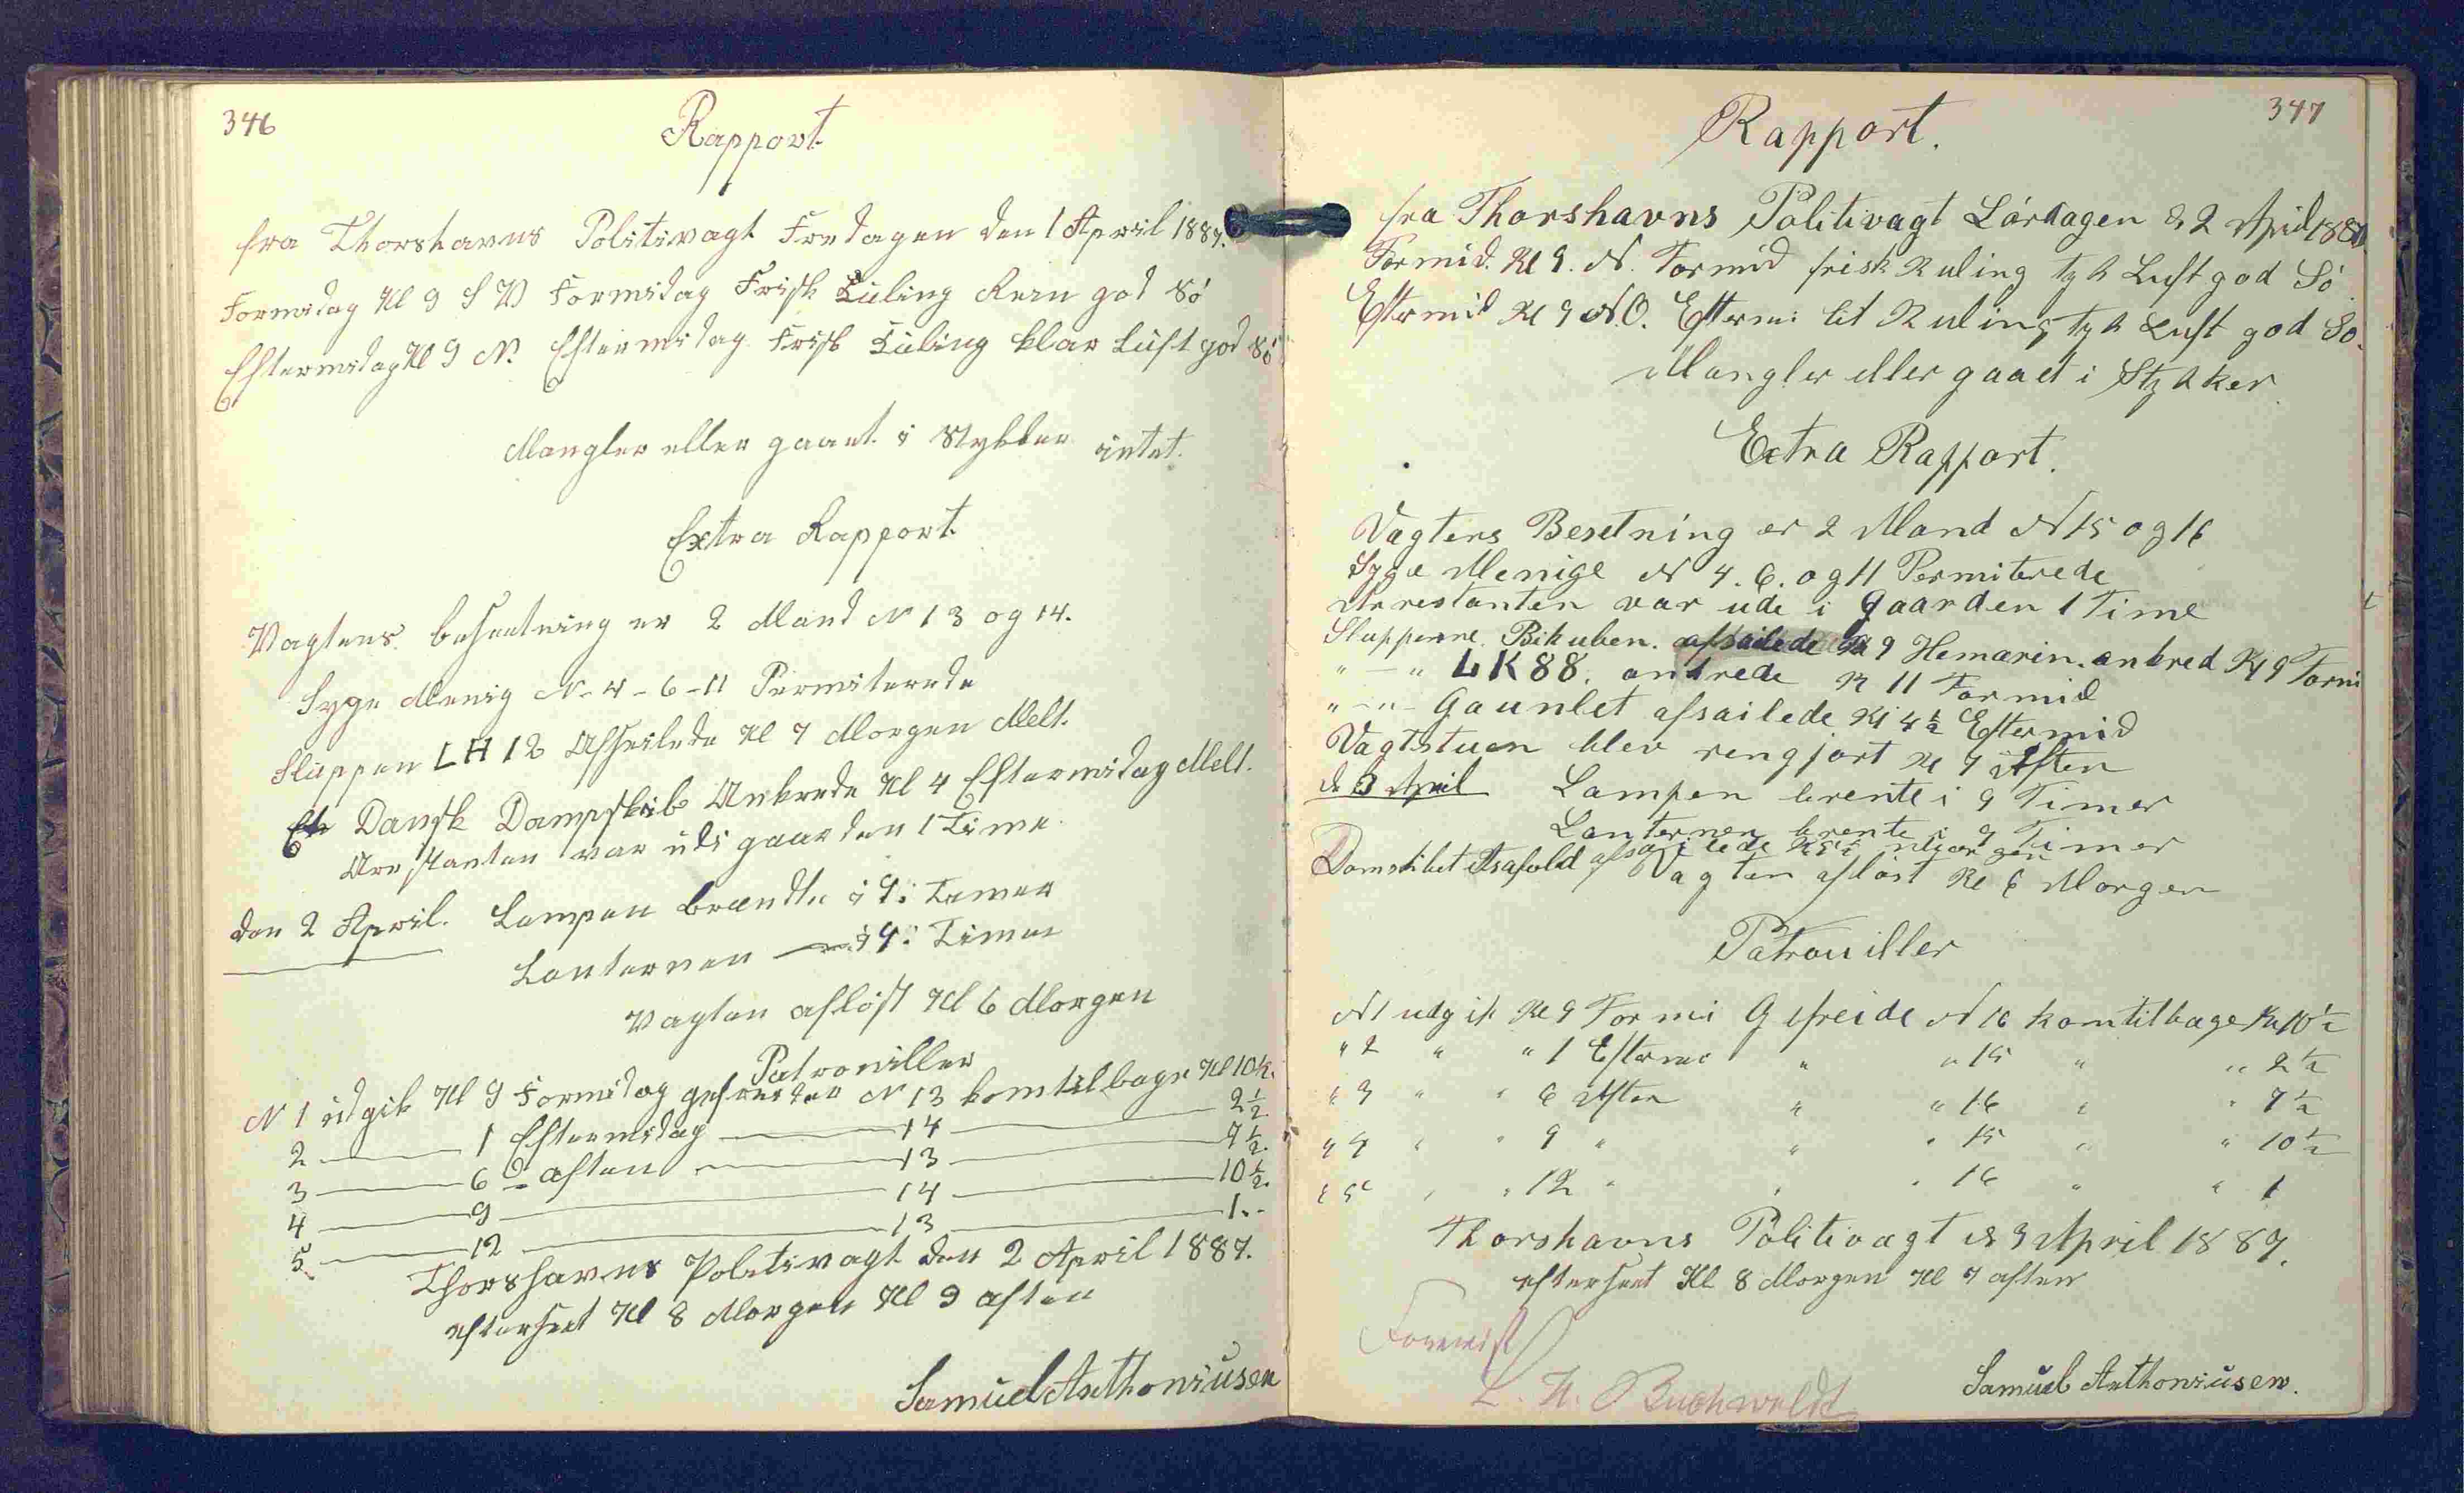 346
Rapport
fra Thorshavns Politivagt Fredagen den 1 April 1887.
Formidag Kl 9 S V Formidag Frisk Kuling Regn god Sö
Eftermidag Kl 9 N. Eftermidag Frisk Kuling klar Luft god Sö
Mangler eller gaaet i Stykker intet.
Extra Rapport
Vagtens besætning er 2 Mand N 13 og 14.
Syge Menig N - 4 - 6 - 11 Permiterede
Sluppen LH 12 Afseilede Kl 7 Morgen Melt.
Et Dansk Dampskib Ankrede Kl 4 Eftermidag Melt.
Arestanten var udi gaarden 1 Time
den 2 April. Lampen brændte i 9: Timer
Lanternen — i 9: Timer
Vagten aflöst Kl 6 Morgen
Patrouiller
N 1 udgik Kl 9 Formidag gefreider N 13 kom tilbage Kl 10½.
2 — 1 Eftermidag — 14 — 2½
3 — 6 aften — 13 — 7½.
4 — 9 — 14 — 10½.
5 — 12 — 13 — 1.-
Thorshavns Politivagt den 2 April 1887.
efterseet Kl 8 Morgen Kl 9 aften
Samuel Anthoniusen
347
Rapport.
fra Thorshavns Politivagt Lördagen d. 2 April 1887
Formid. Kl 9. N. Formid frisk Kuling tyk Luft god Sö
Eftermid Kl 9 N.O. Efterm: lit Kuling tyk Luft god So.
Mangler eller gaaet i Stykker
Extra Rapport.
Vagtens Besetning er 2 Mand N 15 og 16
Syge Menige N 4. 6. og 11 Permiterede
Arrestanten var ude i Gaarden 1 Time
Slupperne Bikuben. afsailede Kl 9 Hemarin. ankred Kl 9 Formi
" — " LK 88. ankrede Kl 11 Formid
" — " Gauntlet afsailede Kl 4½ Eftermid
Vagtstuen blev rengjort Kl 7 Aften
d. 3 April Lampen brente i 9 Timer
Lanternen brente i 9 Timer
Damskibet afsailede Morgen
Vagten aflöst Kl 6 Morgen
Patrouiller
N 1 udgik Kl 9 Formi Gefreide N 16 kom tilbage Kl 10½
" 2 " " 1 Eftermi " " 15 " " 2½
" 3 " " 6 Aften " " 16 " " 7½
" 4 " " 9 " " " 15 " " 10½
" 5 " " 12 " " " 16 " " 1
Thorshavns Politivagt d 3 April 1887.
efterseet Kl 8 Morgen Kl 7 aften
Forevist
Samuel Anthoniusen.
Buchwaldt